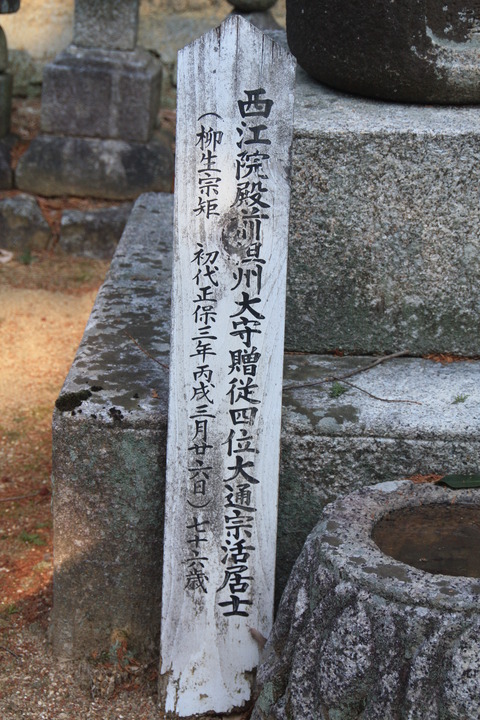 西江院殿前但州大守贈従四位大通宗活居士
(柳生宗矩 初代正保三年丙戌三月廿六日)七十六歳